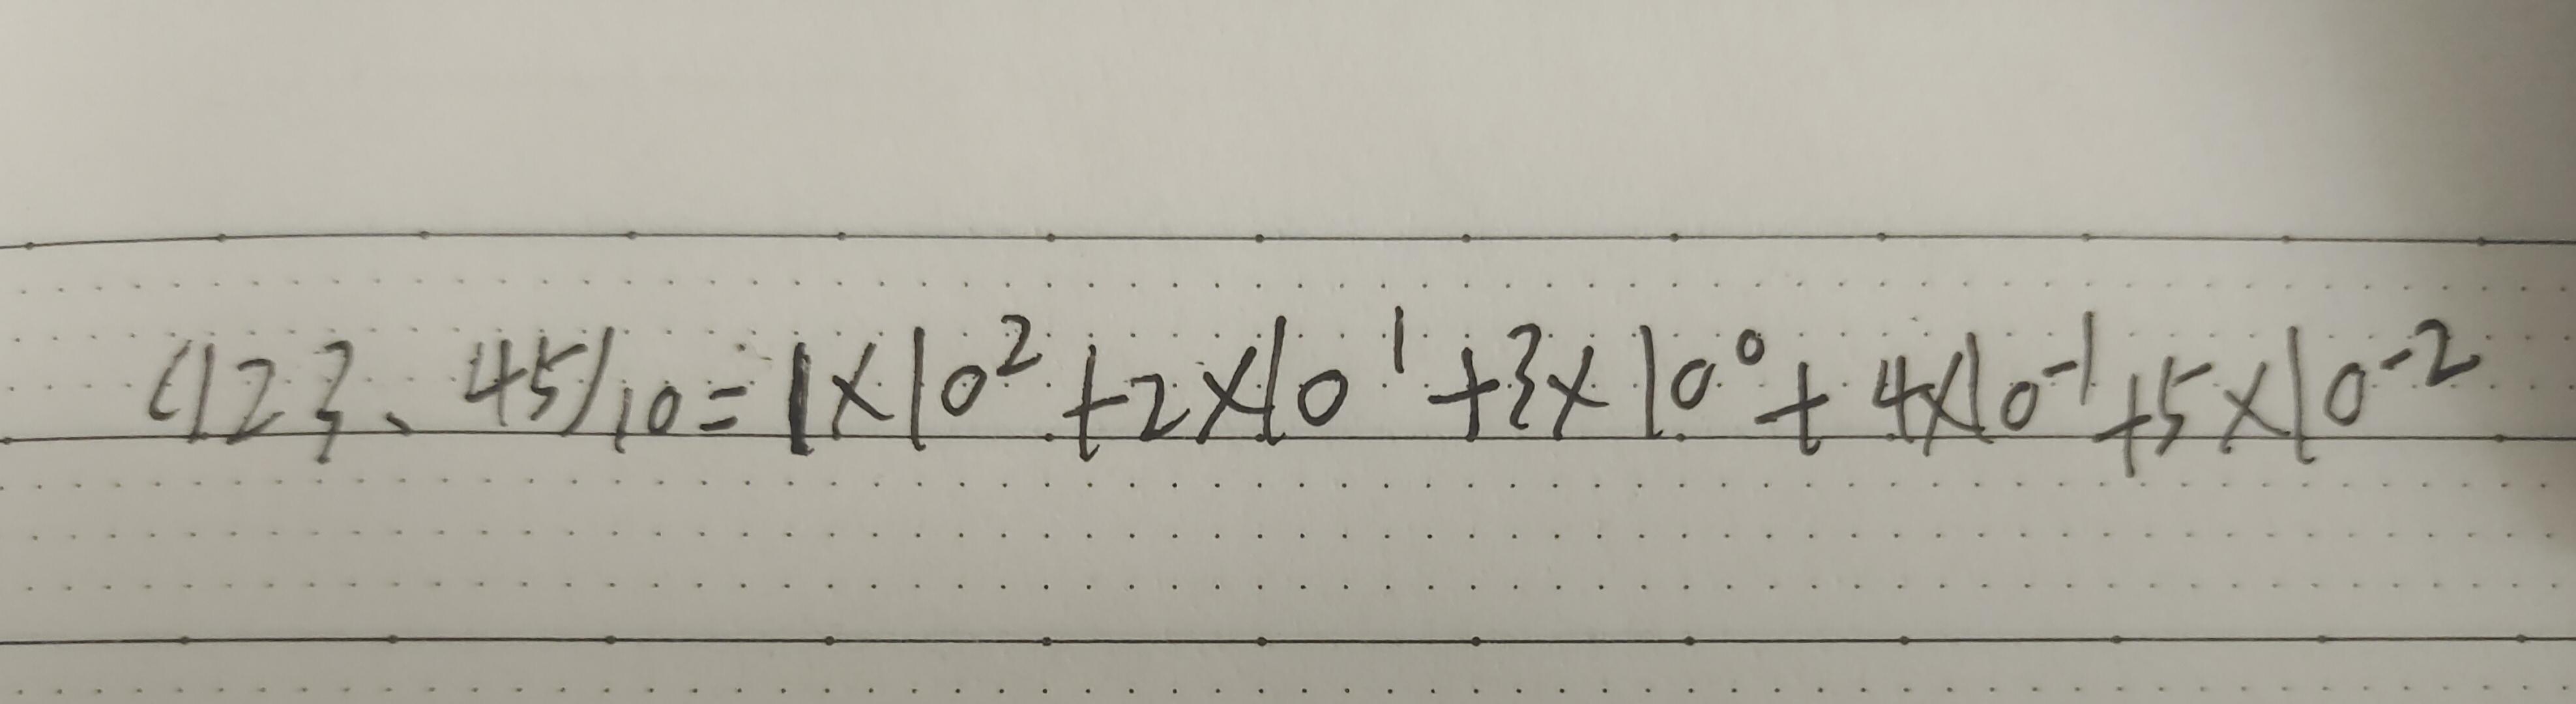 (123、45)₁₀=1×10²+2×10¹+3×10⁰+4×10⁻¹+5×10⁻²